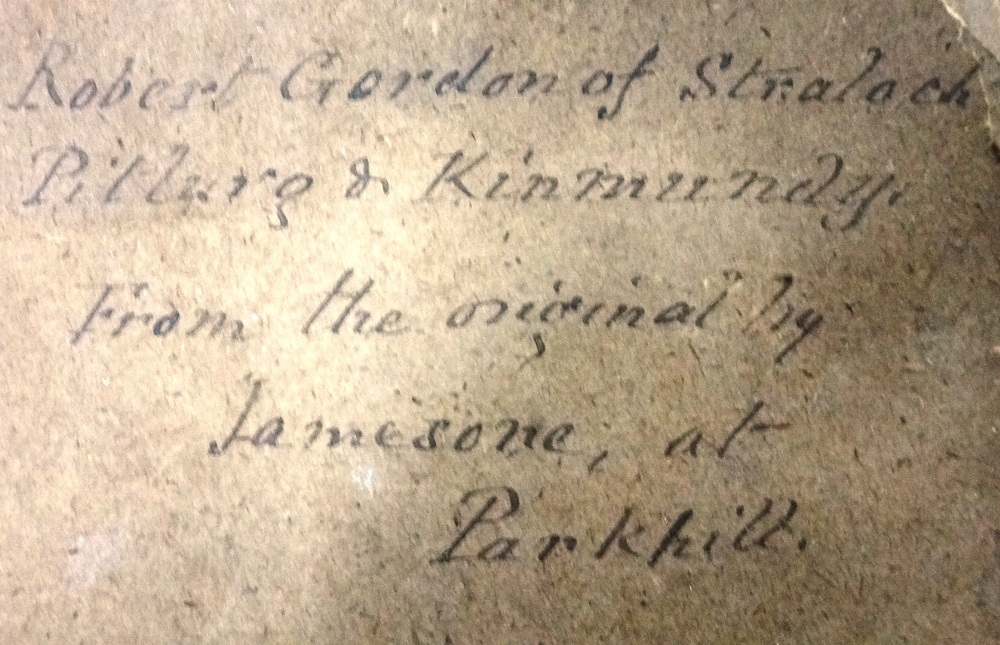 Robert Gordon of Straloch
Pitlurg & Kinmundy.
From the original by
Jamesone, at
Parkhill.